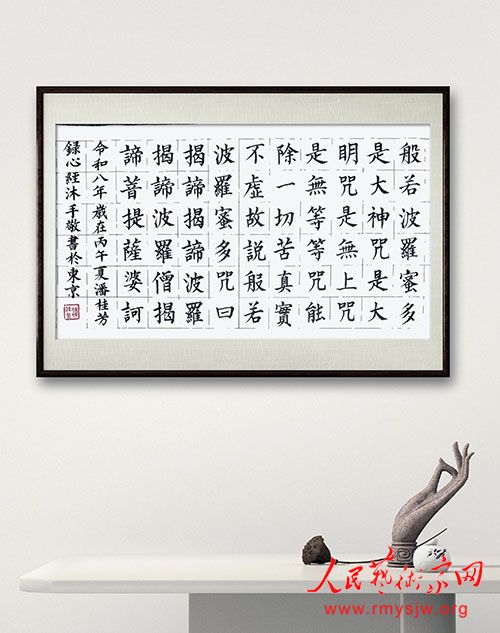 般若波羅蜜多
是大神咒是大
明咒是無上咒
是無等等咒能
除一切苦真實
不虛故説般若
波羅蜜多咒曰
揭諦揭諦波羅
揭諦波羅僧揭
諦菩提薩婆訶
令和八年歲在丙午夏潘桂芳
録心經沐手敬書於東京
人民藝術家网
www.rmysjw.org